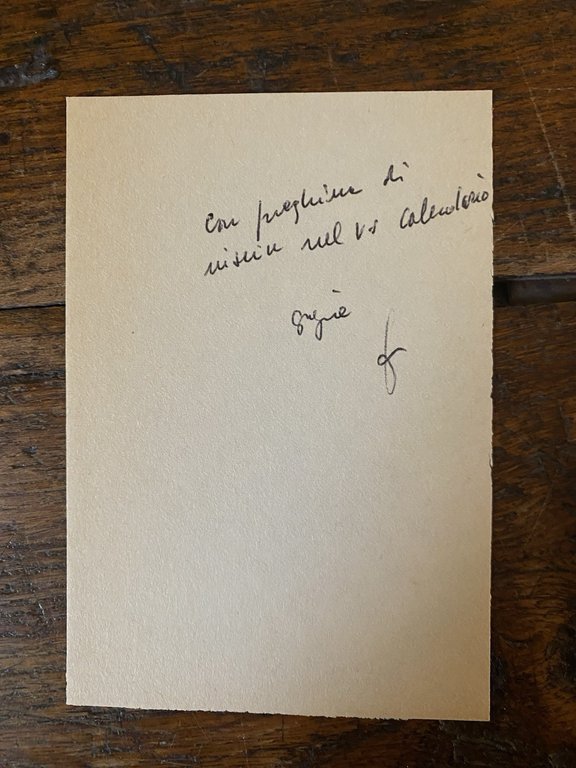 con preghiera di
inserire nel Vs calendario
grazie